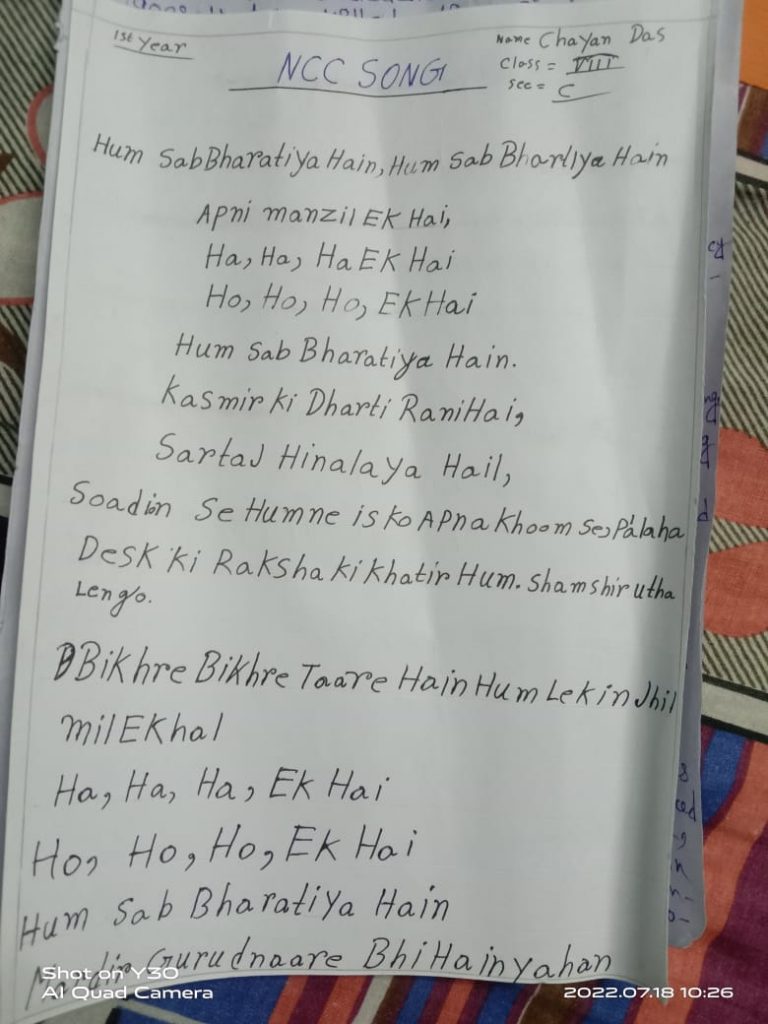 1st Year
Name Chayan Das
NCC SONG
Class = VIII
Sec = C
Hum Sab Bharatiya Hain, Hum Sab Bharliya Hain
Apni manzil Ek Hai,
Ha, Ha, Ha Ek Hai
Ho, Ho, Ho, Ek Hai
Hum Sab Bharatiya Hain.
Kasmir ki Dharti Rani Hai,
Sartaj Hinalaya Hail,
Soadion Se Humne is ko Apna Khoom Se, Palaha
Desk ki Raksha ki Khatir Hum. Shamshir utha
Lengo.
Bikhre Bikhre Taare Hain Hum Lekin Jhil
mil Ek hal
Ha, Ha, Ha, Ek Hai
Ho, Ho, Ho, Ek Hai
Hum Sab Bharatiya Hain
Gurudnaare Bhi Hain yahan
Shot on Y30
AI Quad Camera
2022.07.18 10:26